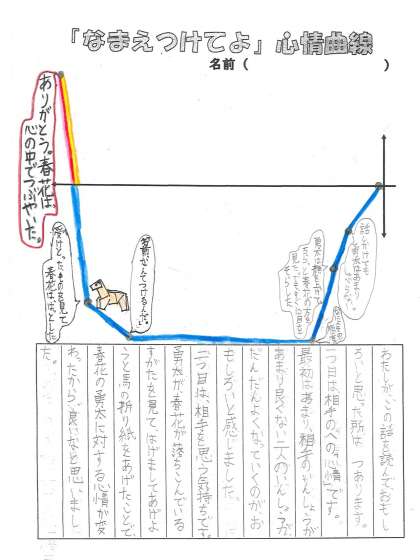 「なまえつけてよ」心情曲線
名前（　　　　）
話しかけても
勇太はあまり
勇太は顔を上げて
春花の方を
名前、なんてつけるんだい。
受けとったものを見て
春花ははっとした
ありがとう。春花は、
心の中でつぶやいた。
わたしがこの話を読んでおもし
ろいと思った所は二つあります。
一つ目は、相手のへの「心情」です。
最初はあまり、相手のいんしょうが
あまり良くない二人のいんしょうが
だんだんよくなっていくのがお
もしろいと感じました。
二つ目は、相手を思う気持ちです。
勇太が春花が落ちこんでいる
すがたを見て、はげましてあげよ
うと馬の折り紙をあげたことで
春花の勇太に対する心情が変
わったから、良いなと思いまし
た。